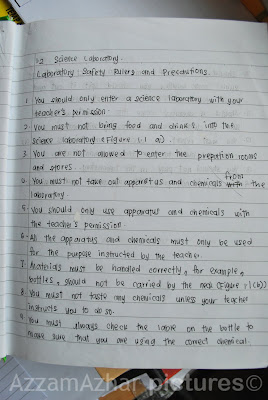 1.2 Science Laboratory.
Laboratory Safety Rulers and Precautions.
1. You should only enter a science laboratory with your
teacher's permission.
2. You must not bring food and drinks into the
science laboratory (Figure 1.1 a)
3. You are not allowed to enter the prepation rooms
and stores.
4. You must not take out apparatus and chemicals from the
laboratory.
5. You should only use apparatus and chemicals with
the teacher's permission
6. All the apparatus and chemicals must only be used
for the purpose instructed by the teacher.
7. Materials must be handled correctly, for example,
bottles, should not be carried by the neck (Figure 1.1(b))
8. You must not taste any chemicals unless your teacher
instructs you to do so.
9. You must always check the lable on the bottle to
make sure that you are using the correct chemical.
AzzamAzhar pictures©